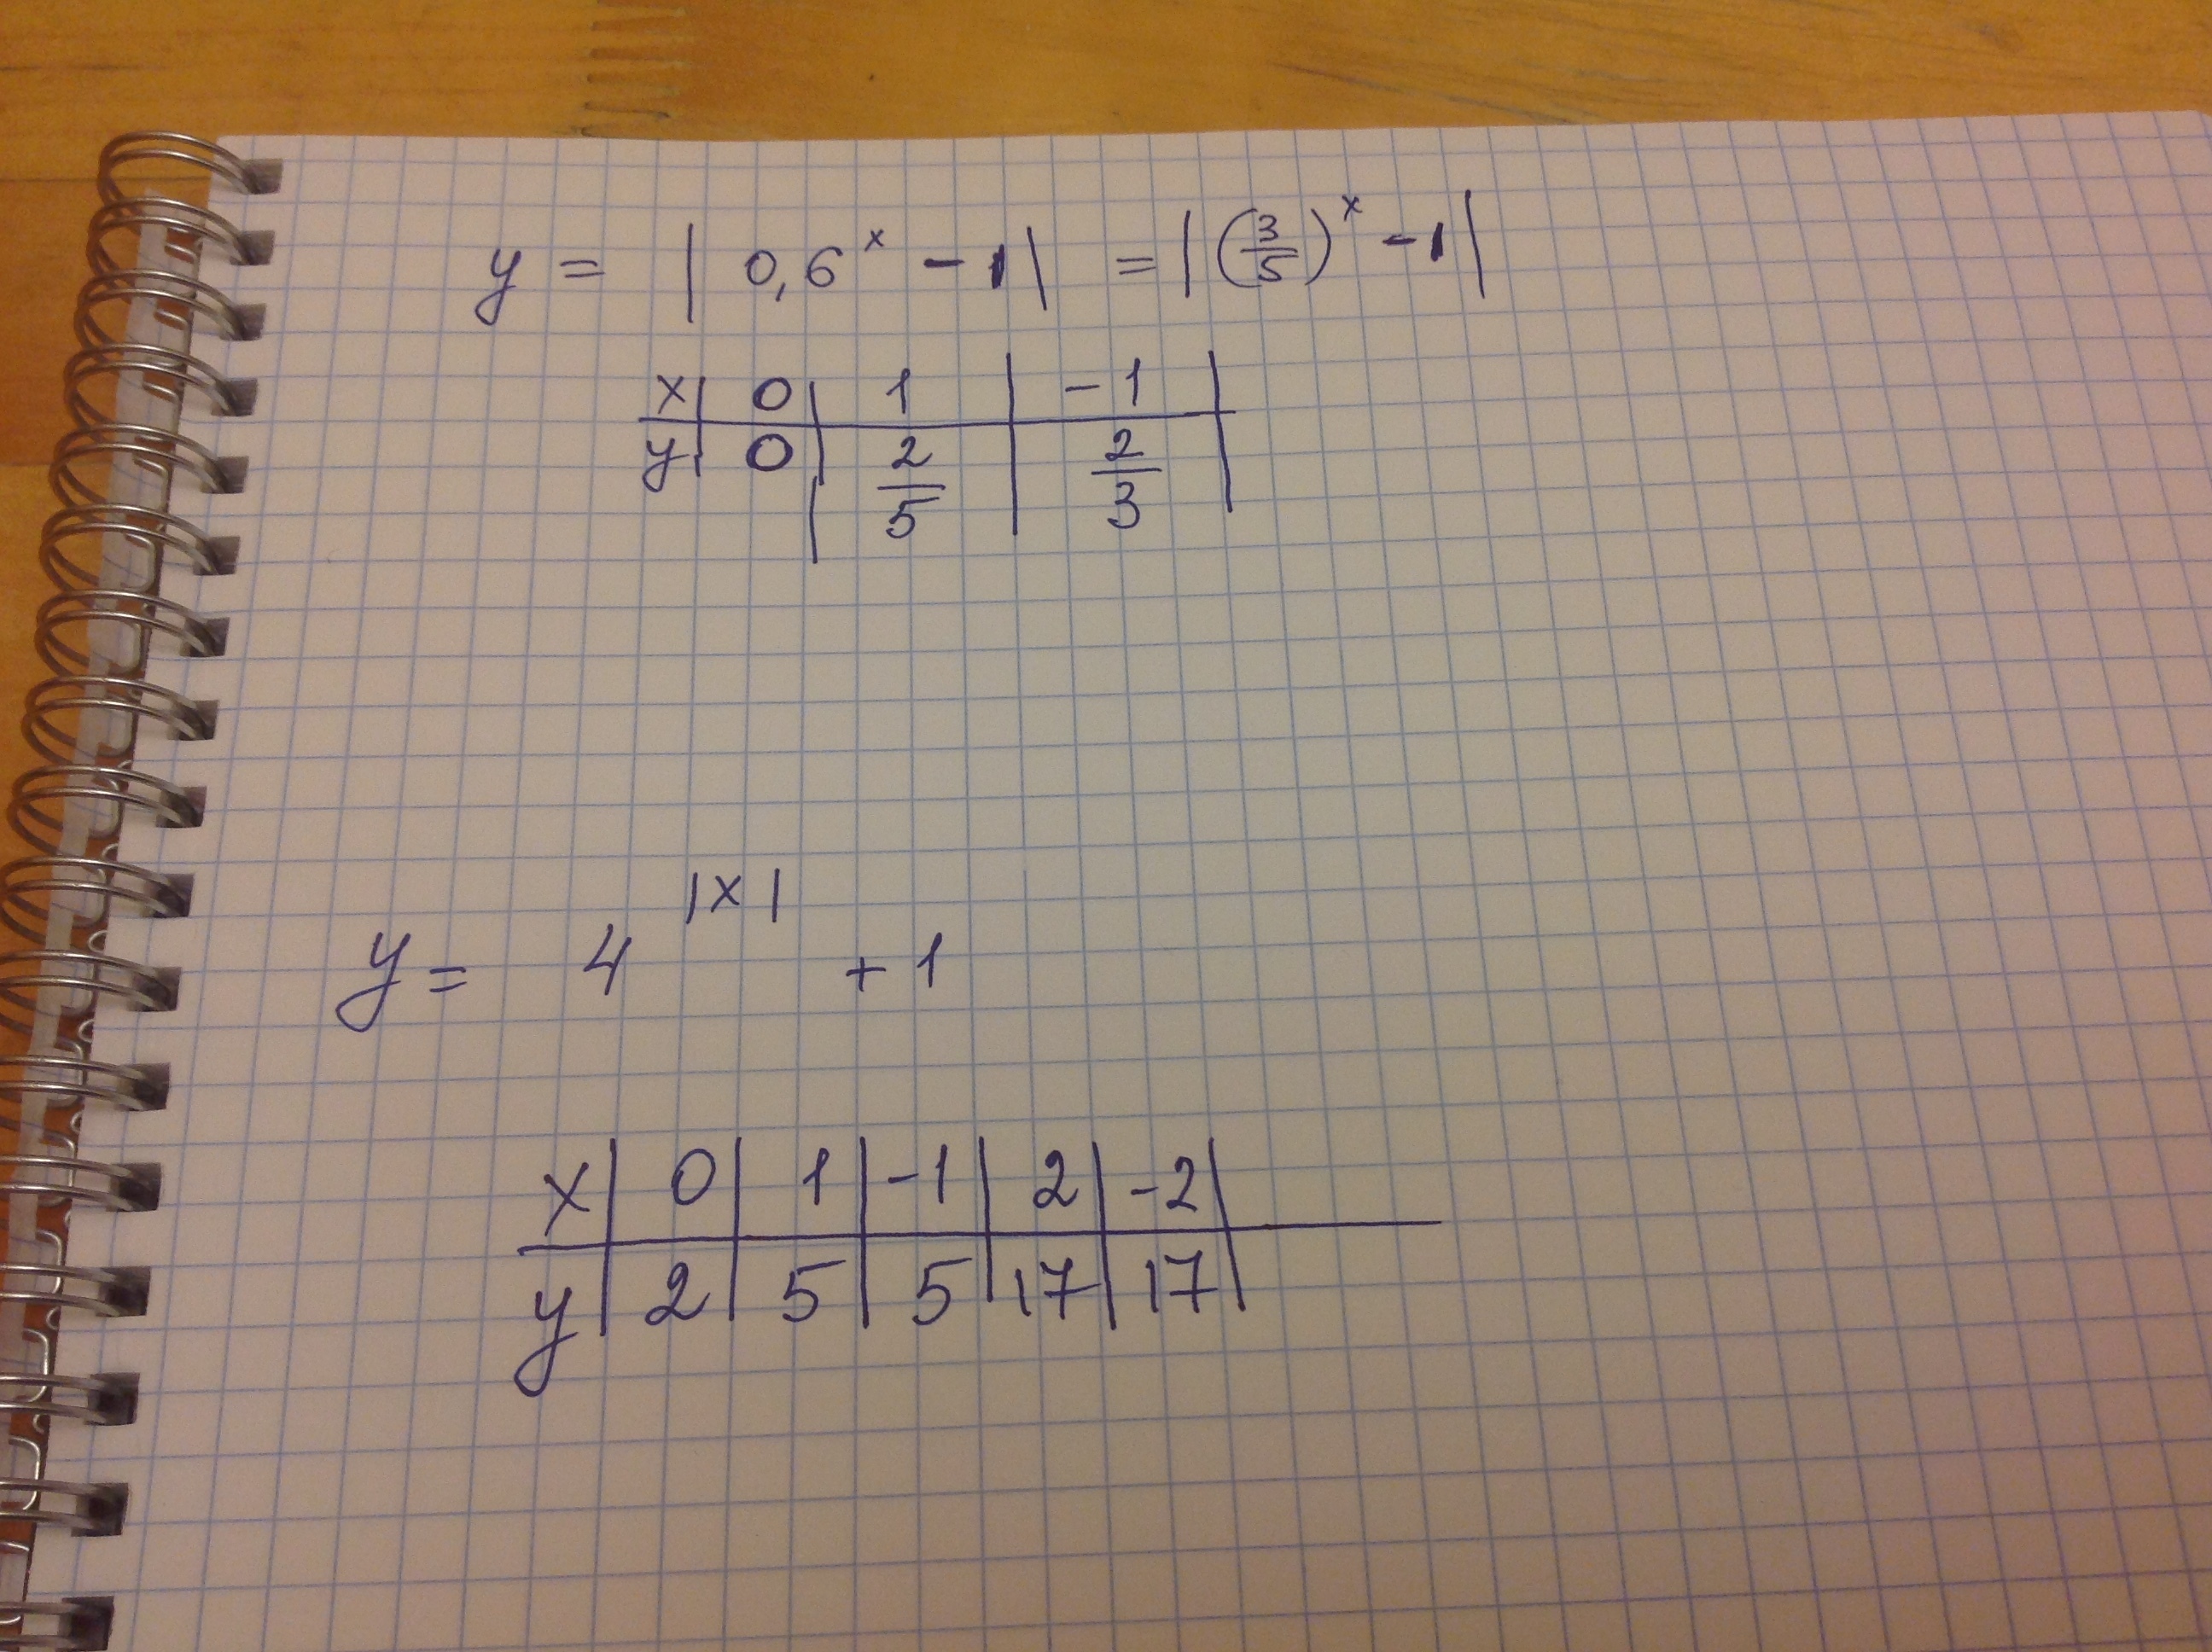 y = | 0,6^x - 1 | = | (3/5)^x - 1 |
x | 0 | 1 | -1 |
y | 0 | 2/5 | 2/3 |
y = 4^|x| + 1
x | 0 | 1 | -1 | 2 | -2 |
y | 2 | 5 | 5 | 17 | 17 |